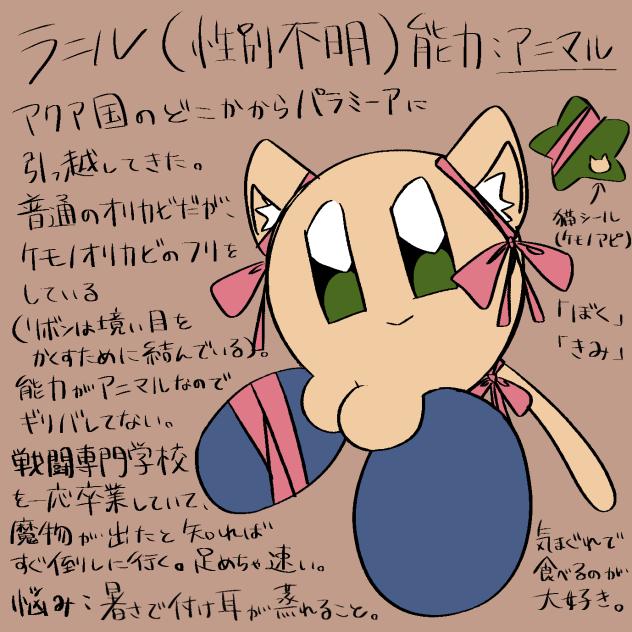 ラニル(性別不明)能力:アニマル
アクア国のどこかからパラミーアに
引っ越してきた。
普通のオリカビだが、
ケモノオリカビのフリを
している
(リボンは境い目を
かくすために結んでいる)。
能力がアニマルなので
ギリバレてない。
戦闘専門学校
を一応卒業していて、
魔物が出たと知れば
すぐ倒しに行く。足めちゃ速い。
悩み:暑さで付け耳が蒸れること。
猫シール
(ケモノアピ)
「ぼく」
「きみ」
気まぐれで
食べるのが
大好き。